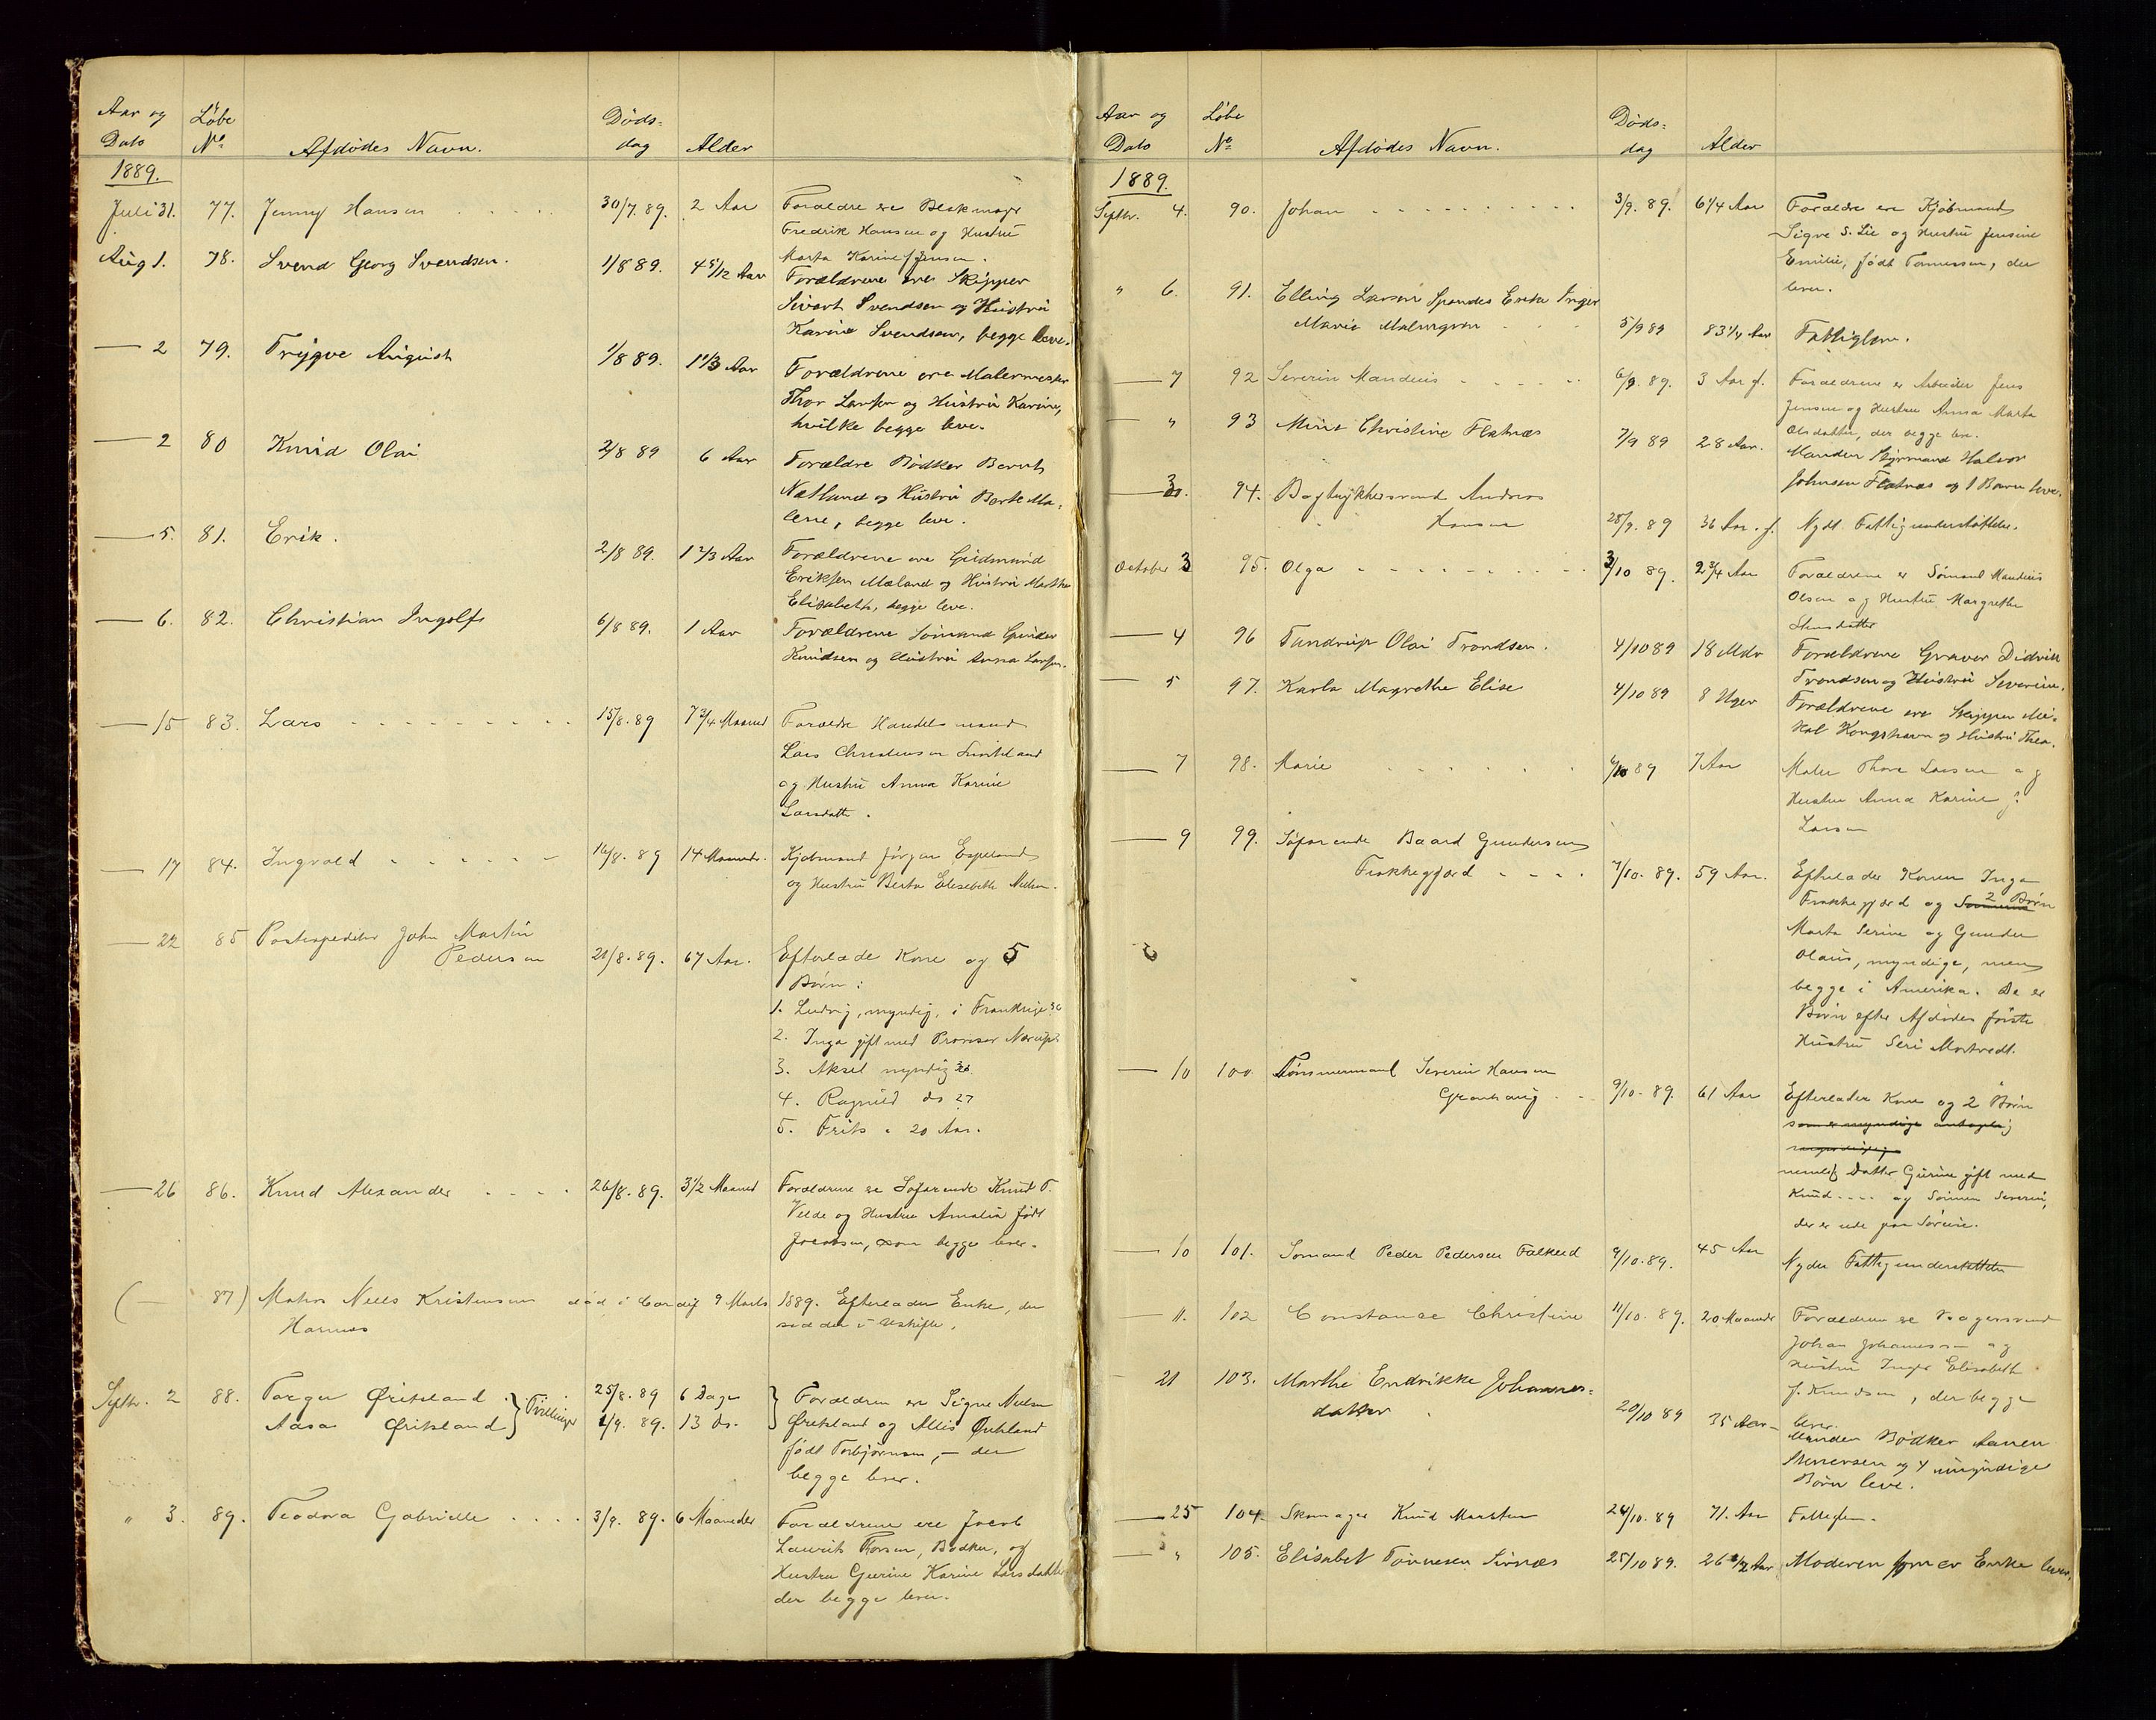 Aar og Dato Løbe No. Afdødes Navn. Døds- dag Alder
1889.
Juli 31. 77. Jenny Hansen 30/7. 89. 2 Aar Forældre ere Blikmager
Fredrik Hansen og Hustru
Marta Karine Jensen.
Aug 1. 78. Svend Georg Svendsen. 1/8 89. 4 5/12 Aar Forældrene ere Skipper
Sivert Svendsen og Hustru
Karine Svendsen, begge leve.
— 2 79. Trygve August 1/8 89. 1 1/3 Aar Forældrene ere Malermester
Thor Larsen og Hustru Karine,
hvilke begge leve.
— 2 80 Knud Olai 2/8 89 6 Aar Forældre Bødker Bernt
Netland og Hustru Berte Ma-
lene, begge leve.
— 5. 81. Erik. 2/8 89. 1 2/3 Aar Forældrene ere Gudmund
Eriksen Mæland og Hustru Marthe
Elisabeth, begge leve.
— 6. 82. Christian Ingolf 6/8 89. 1 Aar Forældrene Sømand Gunder
Knudsen og Hustru Anna Larsen.
— 15 83. Lars 15/8. 89 7 3/4 Maaned Forældre Handelsmand
Lars Christensen
og Hustru Anna Karine
Larsdatter.
— 17 84. Ingvald 16/8. 89 14 Maaneder. Kjøbmand Jørgen Espeland
og Hustru Berta Elisabeth Nilsen.
— 22 85 Postexpeditør John Martin
Pedersen 21/8. 89. 67 Aar. Efterlade Kone og 5
Børn:
1. Ludvig, myndig, i Frankrige 36
2. Inga gift med Provisor
3. Aksel myndig
4. Ragnild do 27
5. Frits " 20 Aar.
— 26 86. Knud Alexander 26/8. 89. 3 1/2 Maaned Forældrene ere Søfarende Knud T.
Velde og Hustru Amalia født
Jacobsen, som begge lever.
( — 87) Matros Niels Kristensen død i Cardif 9 Marts 1889. Efterlader Enke, der
Hornnes sidder i Uskifte.
Septbr. 2 88. Torger Øritsland } Tvillinger 25/8. 89 6 Dage } Forældren ere Sigve Nielsen
Aasa Øritsland 1/9. 89. 13 do. Øritsland og Allis Øritsland
født Torbjørnsen, — der
begge lever.
" 3. 89. Teodora Gabrielle 3/9. 89. 6 Maaneder Forældrene ere Jacob
Laurits Thorsen, Bødker, og
Hustru Gurine Karine Larsdatter
der begge lever.
Aar og Dato Løbe No. Afdødes Navn. Døds- dag Alder
1889.
Septbr. 4. 90. Johan 3/9. 89. 6 1/4 Aar Forældre ere Kjøbmand
Sigve S. Lie og Hustru Jensine
Emilie, født Tønnessen, der
lever.
" 6. 91. Elling Larsen Spandes Enke Inger
Marie Malmgren 5/9 89 83 1/4 Aar Fattiglem.
— 7 92 Severin Mandius 6/9. 89. 3 Aar f. Forældrene er Arbeider Jens
Jensen og Hustru Anna Marta
Olsdatter, der begge leve.
— " 93 Mina Christine Flatnæs 7/9 89 28 Aar. Manden Styrmand Halvor
Johnsen Flatnæs og 1 Barn leve.
— 30. 94. Bagtrykkersvend Andreas
Hansen 28/9. 89 36 Aar. f. Nydt Fattigunderstøttelse.
October 3 95. Olga 3/10 89. 2 3/4 Aar Forældrene er Sømand Mandius
Olsen og Hustru Margrethe
— 4 96 Tandrup Olai Trondsen. 4/10 89 18 Mdr Forældrene Graver Didrik
Trondsen og Hustru Severine.
— 5 97. Karla Magrethe Elise 4/10 89 8 Uger Forældrene ere Skipper Mi-
kal Kongshavn og Hustru Thea.
— 7 98. Marie 6/10 89 7 Aar Maler Thore Larsen og
Hustru Anna Karine f.
Larsen
— 9 99. Søfarende Baard Gundersen
Frakkegjerd 7/10. 89. 59 Aar. Efterlader Konen Inga
Frakkegjerd og 2 Børn
Marta Serine og Gunder
Olaus, myndige, men
begge i Amerika. De er
Børn efter Afdødes første
Hustru Seri Mortvedt.
— 10 100. Tømmermand Severin Hansen
Grønhaug 9/10. 89. 61 Aar Efterlader Kone og 2 Børn
som er myndige antagelig
nemlig Datter Gurine gift med
Knud .... og Sønnen Severin,
der er ude paa Søreise.
— 10 101. Sømand Peder Pedersen Falkeid 9/10. 89. 45 Aar Nyder Fattigunderstøttelse
— 11. 102 Constance Christine 11/10. 89. 20 Maaneder Forældren ere Bagersvend
Johan Johannessen og
Hustru Inger Elisabeth
f. Knudsen, der begge
lever.
21 103. Marthe Endrikke Johannes-
datter 20/10 89 35 Aar Manden Bødker Aanen
Stenersen og 4 umyndige
Børn leve.
— 25 104. Skomager Knud Morsten 24/10. 89 71. Aar Fattiglem.
— " 105. Elisabet Tønnesen Sirnæs 25/10 89. 26 1/2 Aar Moderen som er Enke lever.